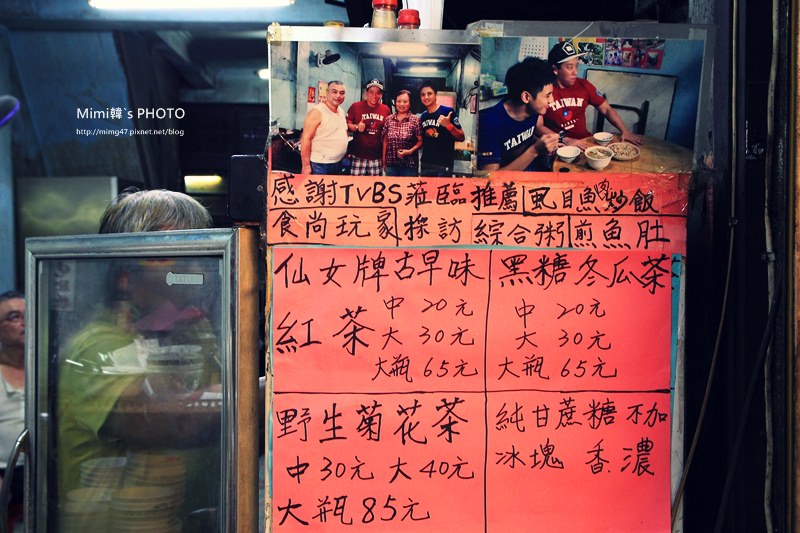 Mimi韓`s PHOTO
http://mimg47.pixnet.net/blog
TAIWAN
TAIWAN
TAIWAN
感謝TVBS蒞臨推薦
食尚玩家採訪
虱目魚肉炒飯
綜合粥
煎魚肚
仙女牌古早味
紅茶
中20元
大30元
大瓶65元
黑糖冬瓜茶
中20元
大30元
大瓶65元
野生菊花茶
中30元 大40元
大瓶85元
純甘蔗糖不加
冰塊 香濃